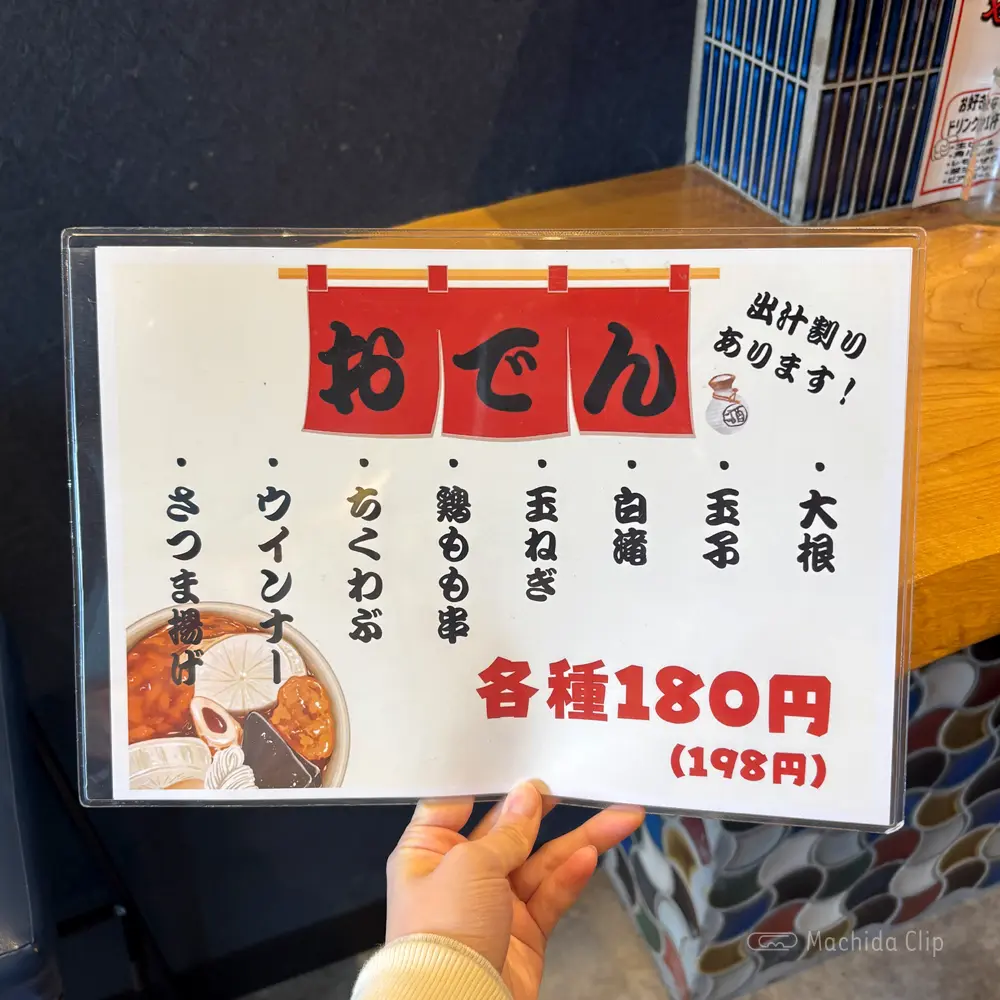 おでん
出汁割り
あります!
酒
・大根
・玉子
・白滝
・玉ねぎ
・鶏もも串
・ちくわぶ
・ウインナー
・さつま揚げ
各種180円
(198円)
お好き
ドリンク
Machida Clip